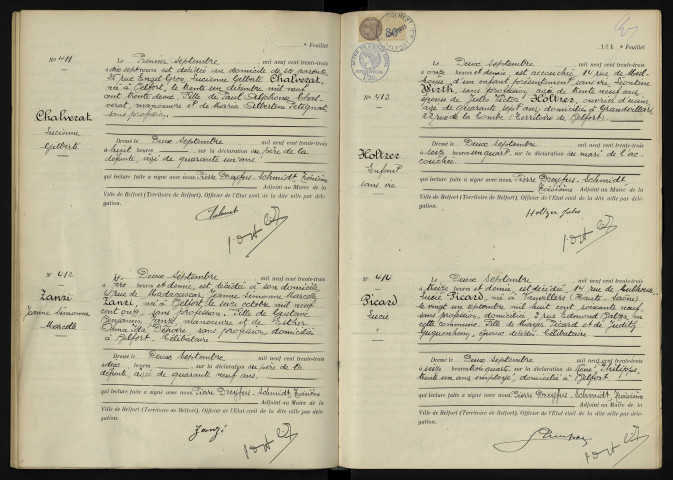 Nº 411
Chalverat
Lucienne
Gilberte
Le Premier Septembre mil neuf cent trente-trois
à dix sept heures est décédée au domicile de ses parents,
rue Engel Gros, Lucienne Gilberte Chalverat,
née à Belfort, le trente un décembre mil neuf
cent trente deux, Fille de Paul Alphonse Chal-
verat, manoeuvre et de Maria Albertine Petignat
sans profession.
Dressé le Deux Septembre mil neuf cent trente-trois
à huit heures, sur la déclaration du père de la
défunte, âgé de quarante un ans
qui lecture faite a signé avec nous Pierre Dreyfus-Schmidt, troisième
Adjoint au Maire de la
Ville de Belfort (Territoire de Belfort), Officier de l'Etat civil de la dite ville par délé-
gation.
Nº 412
Zanzi
Jeanne Simonne
Marcelle
Le Deux Septembre mil neuf cent trente-trois
à heures et demie, est décédée à son domicile
rue de Madagascar, Jeanne Simonne Marcelle
Zanzi, née à Belfort, le seize octobre mil neuf
cent onze, sans profession. Fille de Gustave
Benjamin Zanzi, manoeuvre et de Esther
sans profession, domiciliés
à Belfort. Célibataire
Dressé le Deux Septembre mil neuf cent trente-trois
à dix heures, sur la déclaration du père de la
défunte, âgé de quarante neuf ans.
qui lecture faite a signé avec nous Pierre Dreyfus-Schmidt, troisième
Adjoint au Maire de la
Ville de Belfort (Territoire de Belfort), Officier de l'Etat civil de la dite ville par délé-
gation.
Zanzi
Feuillet
Nº 413
Holtzer
Enfant
sans vie
Le Deux Septembre mil neuf cent trente-trois
à onze heures et demie, est accouchée, 14 rue de Mul-
house, d'un enfant présentement sans vie, Léontine
Wirth, sans profession, âgée de trente neuf ans,
épouse de Jules Victor Holtzer, ouvrier d'usine,
âgé de quarante sept ans, domiciliés à Grandvillars,
rue de la Combe (Territoire de Belfort).
Dressé le Deux Septembre mil neuf cent trente-trois
à seize heures un quart, sur la déclaration du mari de l'ac-
couchée
qui lecture faite a signé avec nous Pierre Dreyfus-Schmidt,
troisième Adjoint au Maire de la
Ville de Belfort (Territoire de Belfort), Officier de l'Etat civil de la dite ville par délé-
gation.
Holtzer Jules
Nº 414
Picard
Lucie
Le Deux Septembre mil neuf cent trente-trois
à treize heures et demie, est décédée, 14 rue de Mulhouse,
Lucie Picard, née à Fauvillers (Haute-Saône)
le vingt un septembre mil huit cent soixante neuf,
sans profession, domiciliée, 3 rue Edmond
cette commune, Fille de Picard et de Judith
époux décédés. Célibataire
Dressé le Deux Septembre mil neuf cent trente-trois
à seize heures quarts, sur la déclaration de René Philippe,
trente un ans, employé, domicilié à Belfort
qui lecture faite a signé avec nous Pierre Dreyfus-Schmidt, troisième
Adjoint au Maire de la
Ville de Belfort (Territoire de Belfort), Officier de l'Etat civil de la dite ville par délé-
gation.